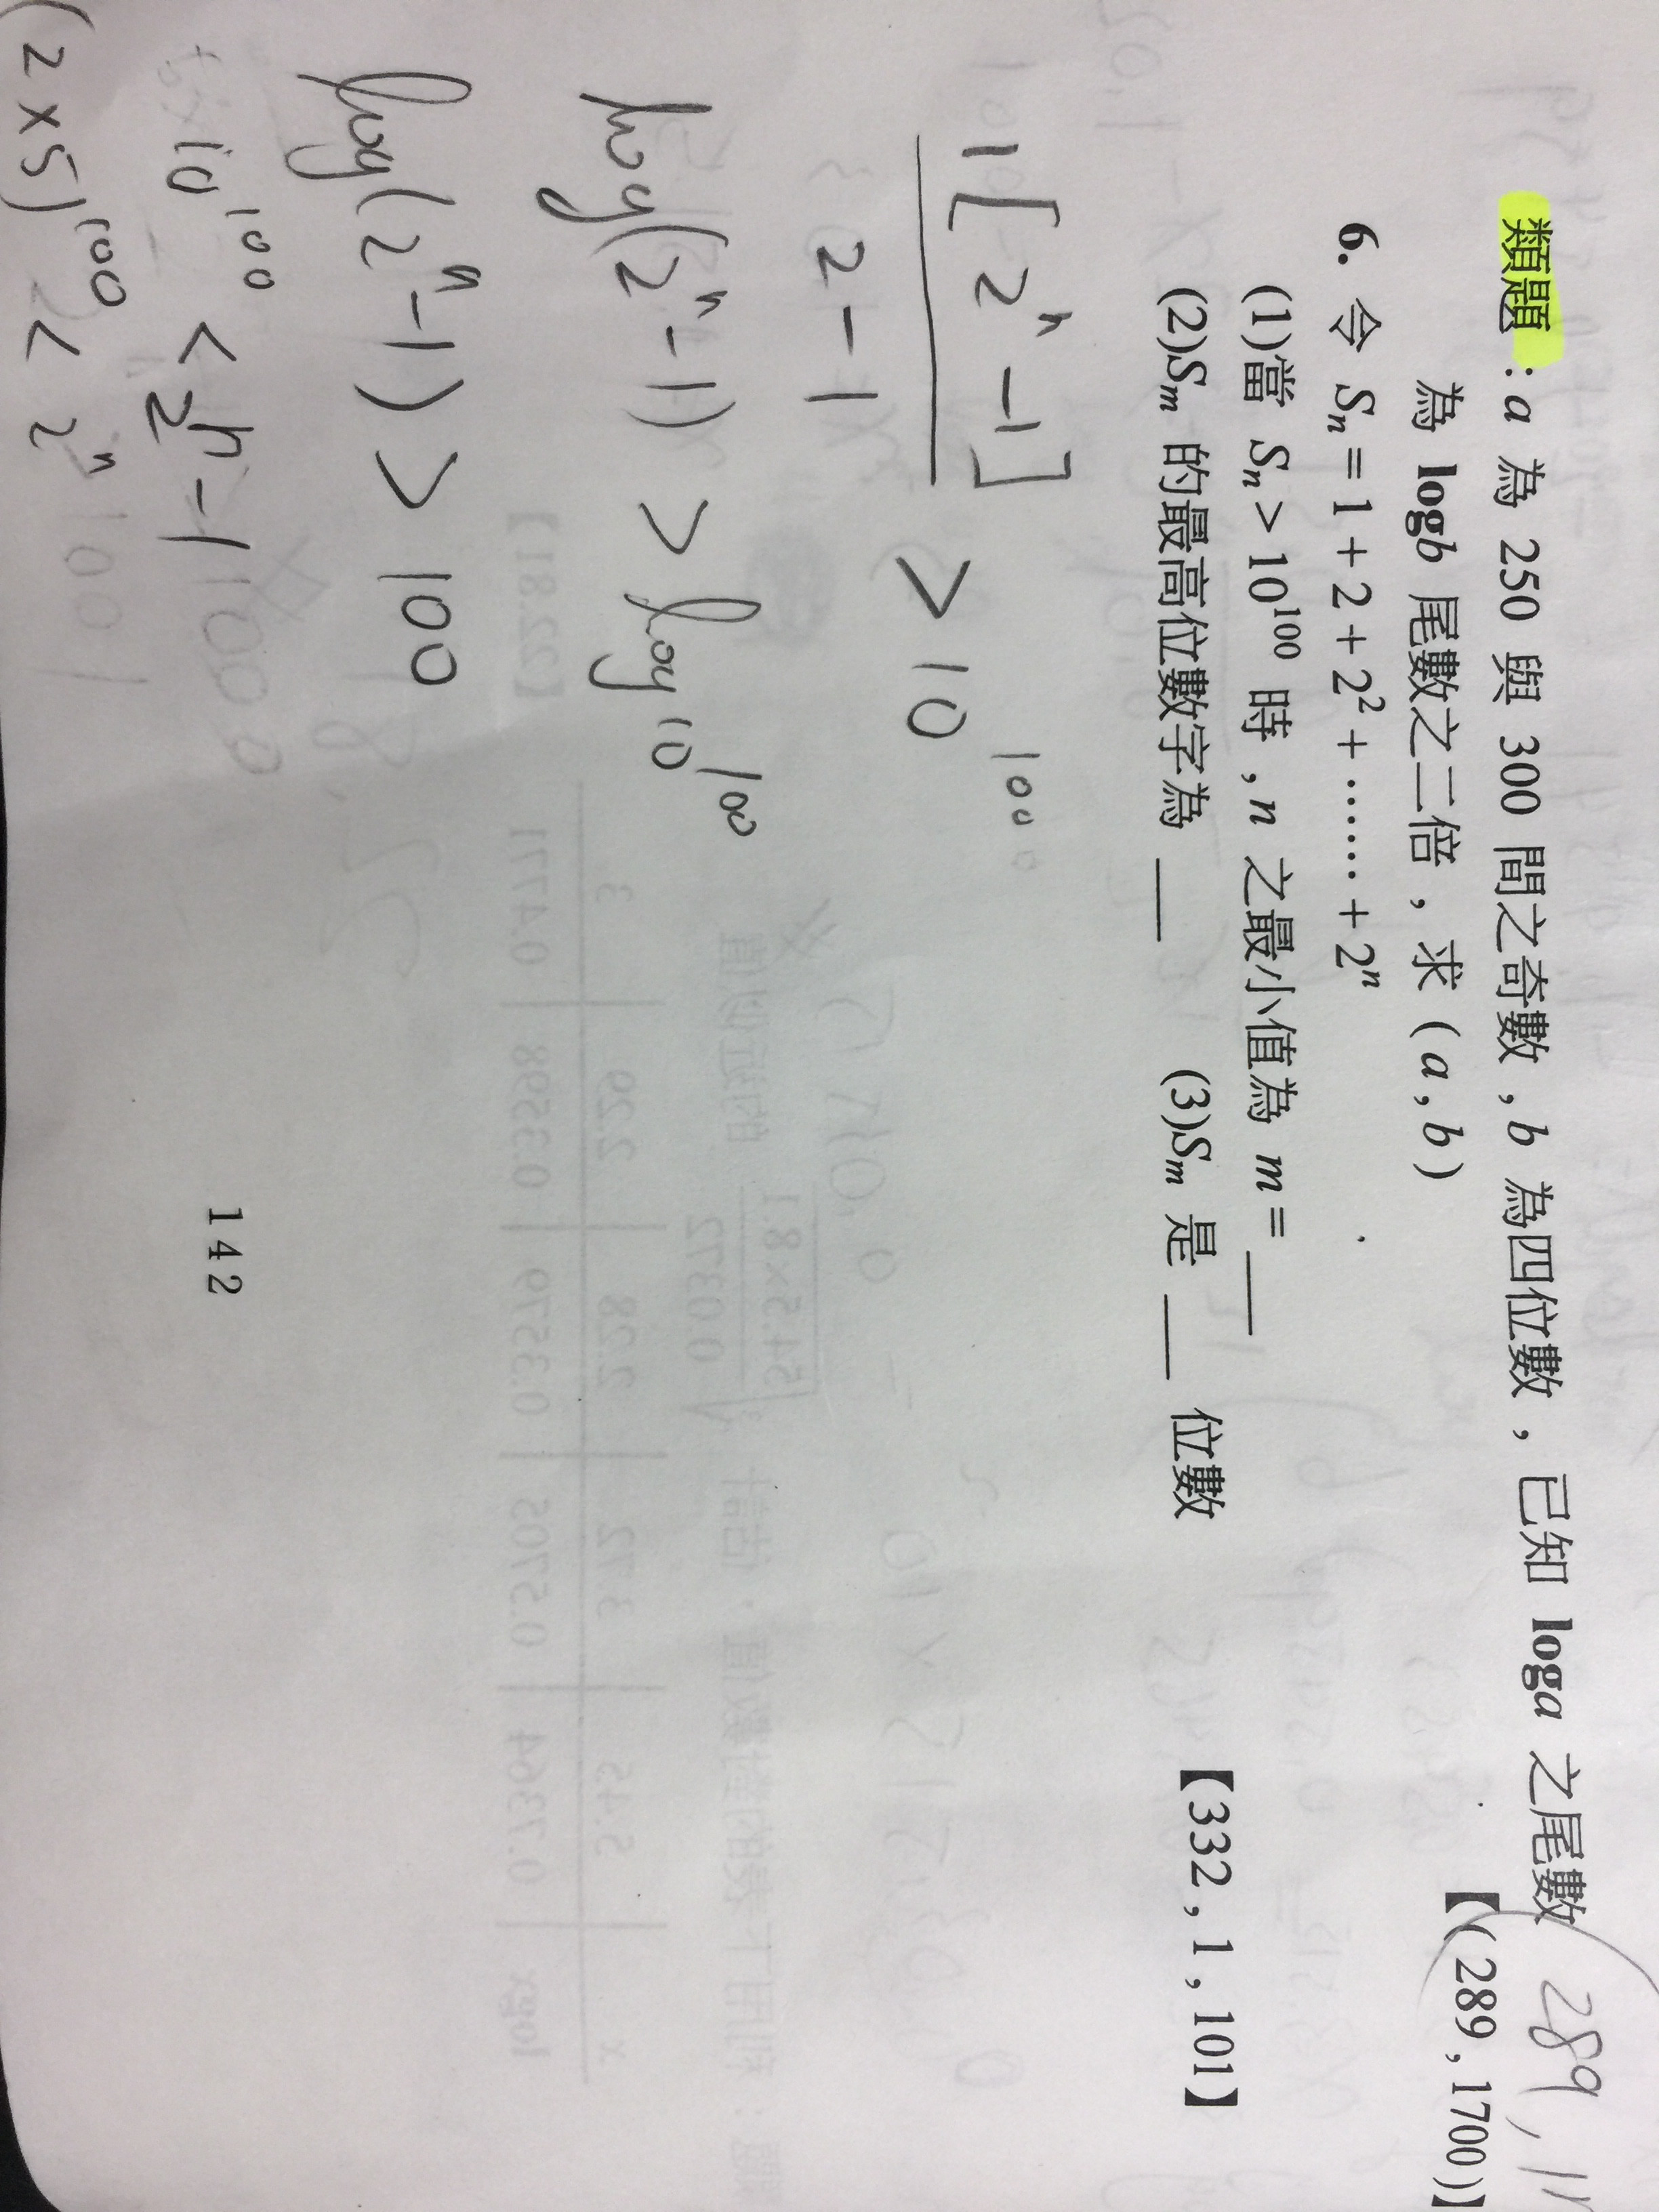 類題:a 為 250 與 300 間之奇數,b 為四位數,已知 loga 之尾數
為 logb 尾數之二倍,求(a,b) 【(289,1700)】
289,
6. 令 Sn=1+2+2²+……+2ⁿ
(1)當 Sn>10¹⁰⁰ 時,n 之最小值為 m=___
(2)Sm 的最高位數字為 ___ (3)Sm 是 ___ 位數 【332,1,101】
1[2ⁿ-1]
2-1
> 10¹⁰⁰
log(2ⁿ-1) > log10¹⁰⁰
log(2ⁿ-1) > 100
10¹⁰⁰ < 2ⁿ-1
(2×5)¹⁰⁰ < 2ⁿ
142